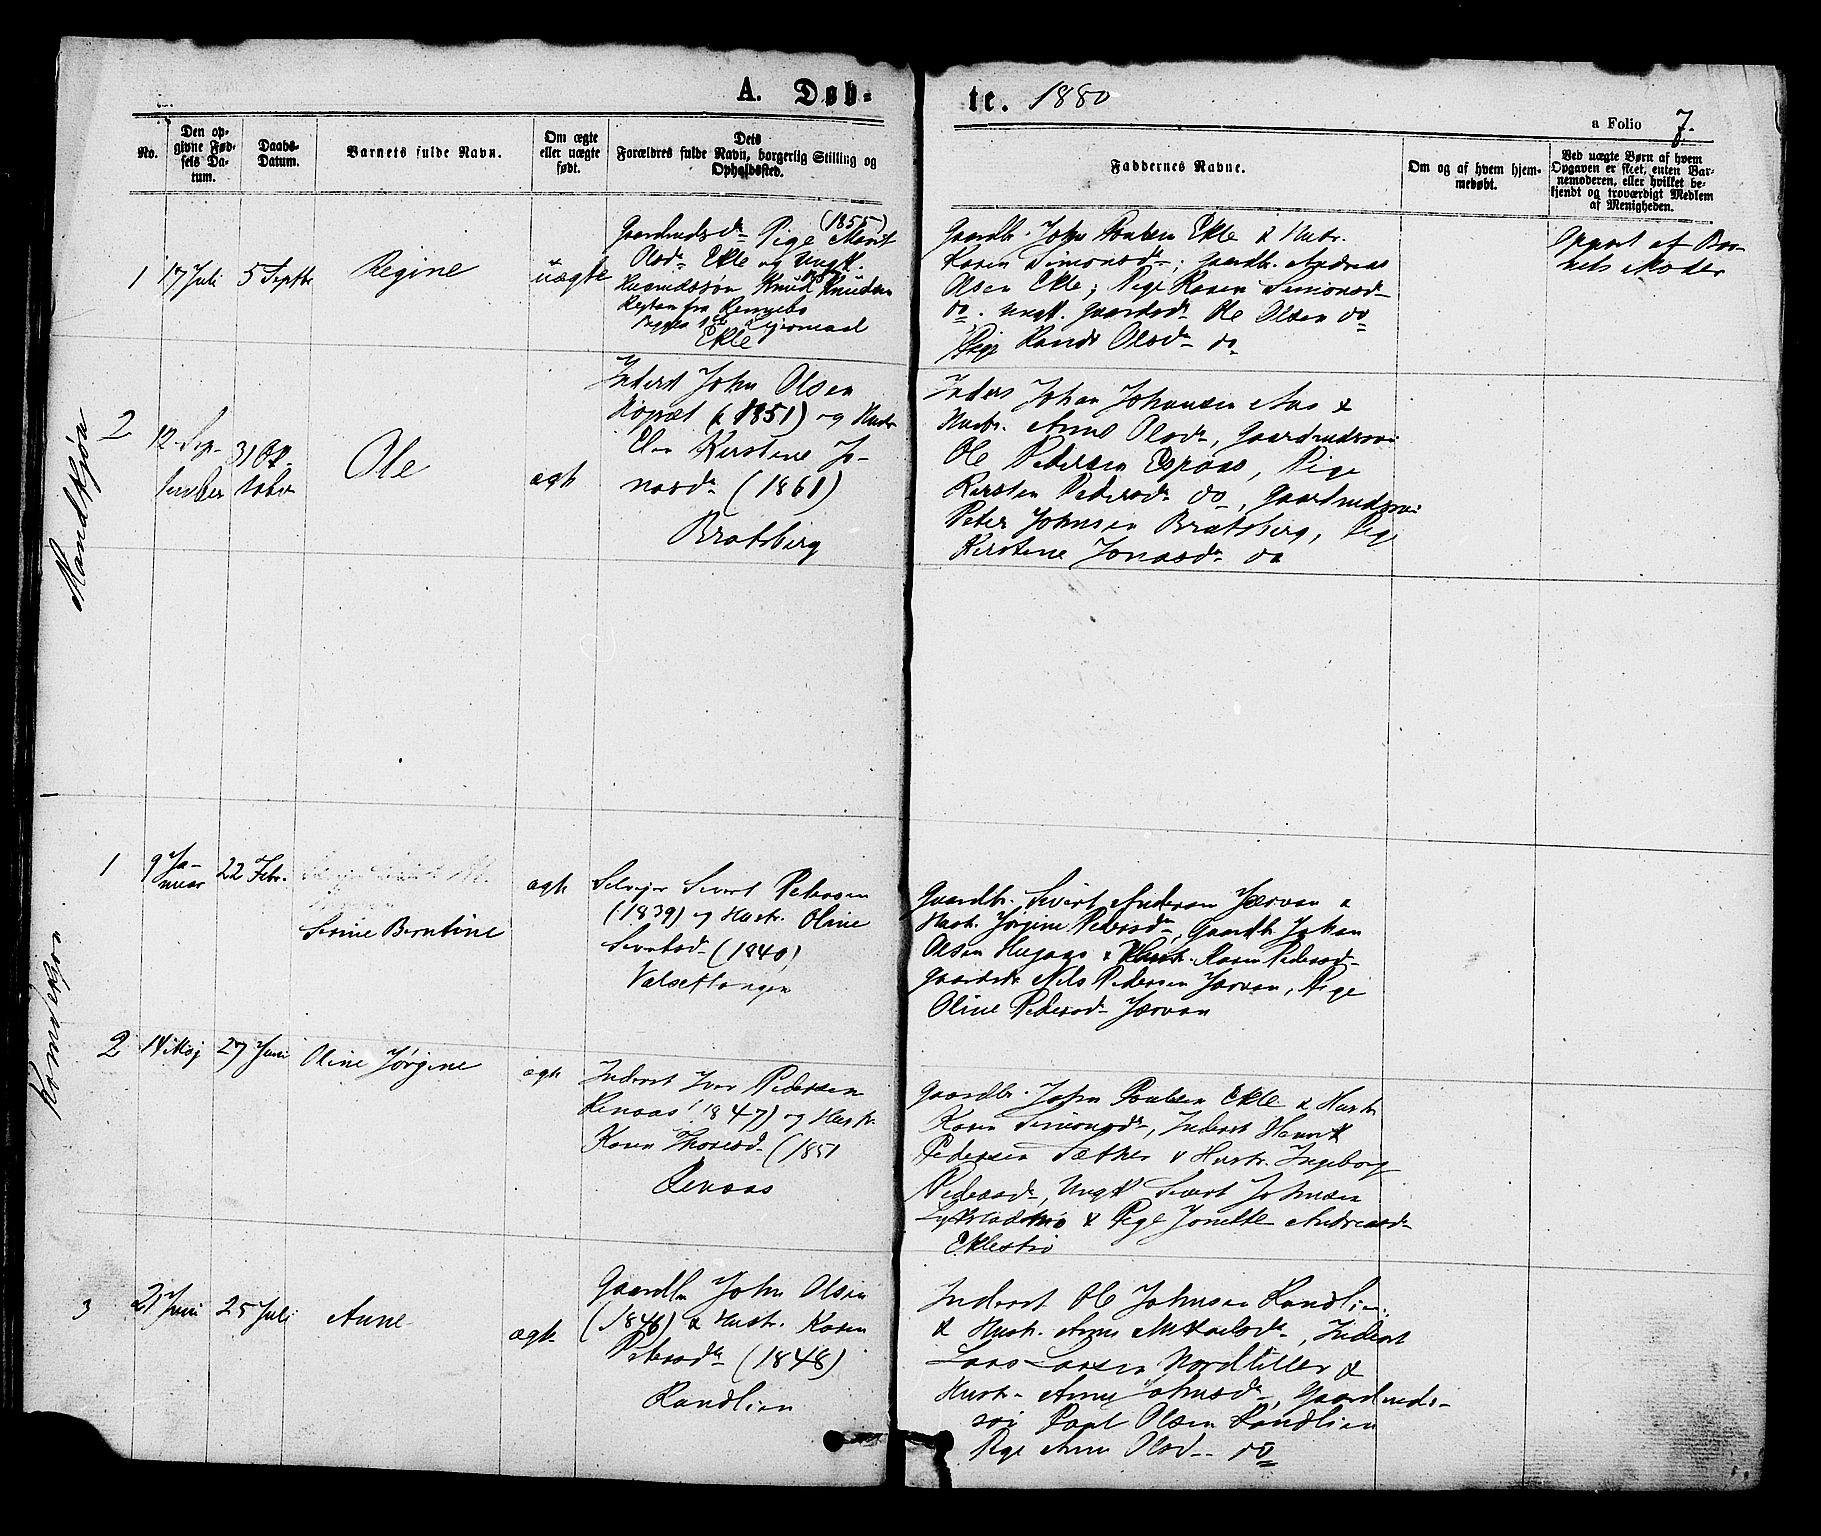 A. Døb-
te. 1880
a Folio 7.
No.
Den op-
givne Fød-
sels Da-
tum.
Daabs-
Datum.
Barnets fulde Navn.
Om ægte
eller uægte
født.
Dets
Forældres fulde Navn, borgerlig Stilling og
Opholdssted.
Faddernes Navne.
Om og af hvem hjem-
medøbt.
Ved uægte Børn af hvem
Opgaven er skeet, enten Bar-
nemoderen, eller hvilket be-
kjendt og troværdigt Medlem
af Menigheden.
Mandkjøn
1
17 Juli
5 Septbr
Regine
uægte
(1855)
Pige Marit
Olsdr Ekle og Ungk.
Knud Knudsen
Ekle
Gaardbr. John Paulsen Ekle & Hustr.
Karen Simonsdr; Gaardbr. Andreas
Olsen Ekle; Pige Karen Simonsd-
do. Ungk. Ole Olsen do
Pige Randi Olsdr do
Opgivet af Bar-
nets Moder
2
12 Sep-
tember
31 Ok
tober
Ole
ægte
Inderst John Olsen
(1851) og Hustr
Kirstine Jo-
nasdr (1861)
Bratsberg
Inders Johan Johansen Aas &
Hustr. Anne Olsdr, Gaardmdssøn
Ole Pedersen Espaas, Pige
Kirsten Pedersdr do, Gaardmdssøn
Peter Johnsen Bratsberg, Pige
Kirstine Jonasdr do
Kvindekjøn
1
9 Ja-
nuar
22 Febr.
Sirine Berntine
ægte
Selveier Sivert Petersen
(1839) og Hustr. Oline
Sivertsd- (1840)
Valsettangen
Gaardbr. Sivert Andersen Jærvan &
Hustr. Jørgine Pedersdr, Gaardb. Johan
Olsen Hegaas & Hustr. Karen Pedersd-
Nils Pedersen Jærvan, Pige
Oline Pedersd- Jærvan
2
14 Maj
27 Juni
Oline Jørgine
ægte
Inderst Iver Pedersen
Renaas (1847) og Hustr.
Karen Thoresd- (1851
Renaas
Gaardbr. John Paulsen Ekle & Hustr
Karen Simonsdr, Inderst Henrik
Pedersen Sæther & Hustr. Ingeborg
Pedersdr, Ungk Sivert Johnsen
& Pige Jonette Andreasdr
Eklestrø
3
21 Juni
25 Juli
Anne
ægte
Gaardbr John Olsen
(1846) & Hustr. Karen
Petersdr (1848)
Randlien
Inderst Ole Johnsen Randlien
& Hustr. Anne Mikkelsdr, Inderst
Lars Larsen Nordtiller &
Hustr- Anne Johnsdr, Gaardmds-
søn Paul Olsen Randlien
Pige Anne Olsd- do